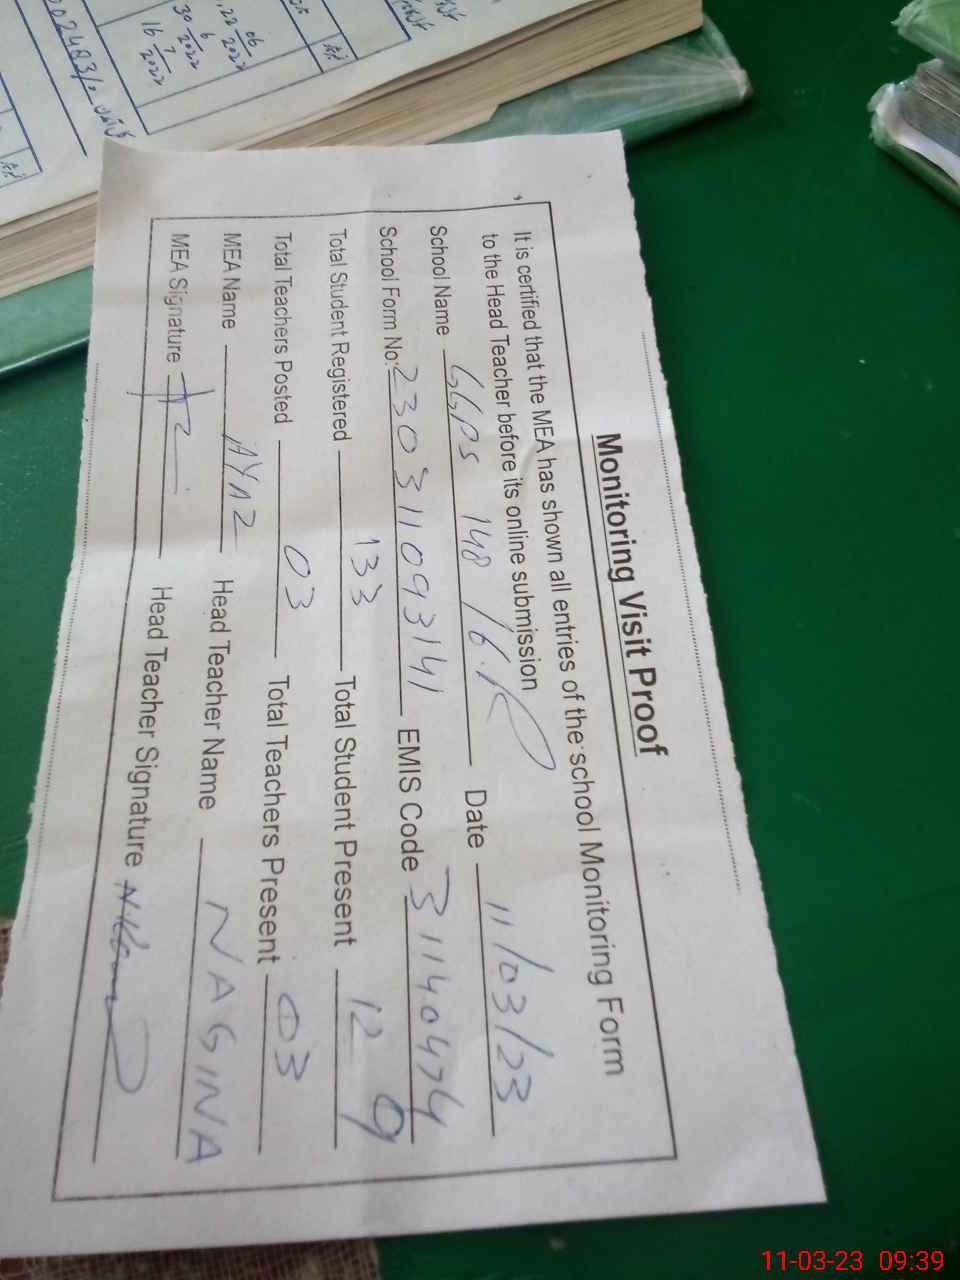 Monitoring Visit Proof
It is certified that the MEA has shown all entries of the school Monitoring Form
to the Head Teacher before its online submission
School Name GGPS 148 / 6.R Date 11/03/23
School Form No: 230311093141 EMIS Code 31140474
Total Student Registered 133 Total Student Present 129
Total Teachers Posted 03 Total Teachers Present 03
MEA Name AYAZ Head Teacher Name NAGINA
MEA Signature Head Teacher Signature
30/6/2022
16/7/2022
11-03-23 09:39